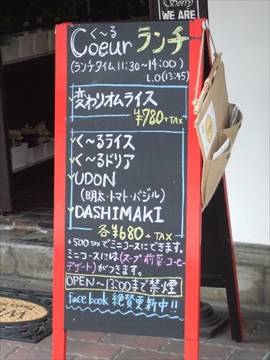 Sorry
WE ARE
く〜る
Coeur ランチ
(ランチタイム 11:30〜14:00)
L.O(13:45)
変わりオムライス
¥780+TAX
く〜るライス
く〜るドリア
UDON
(明太・トマト・バジル)
DASHIMAKI
各¥680+TAX
+500TAXでミニコースにできます。
ミニコースには(スープ前菜コーヒー
デザート)がつきます。
OPEN〜13:00まで禁煙
facebook 絶賛更新中!!